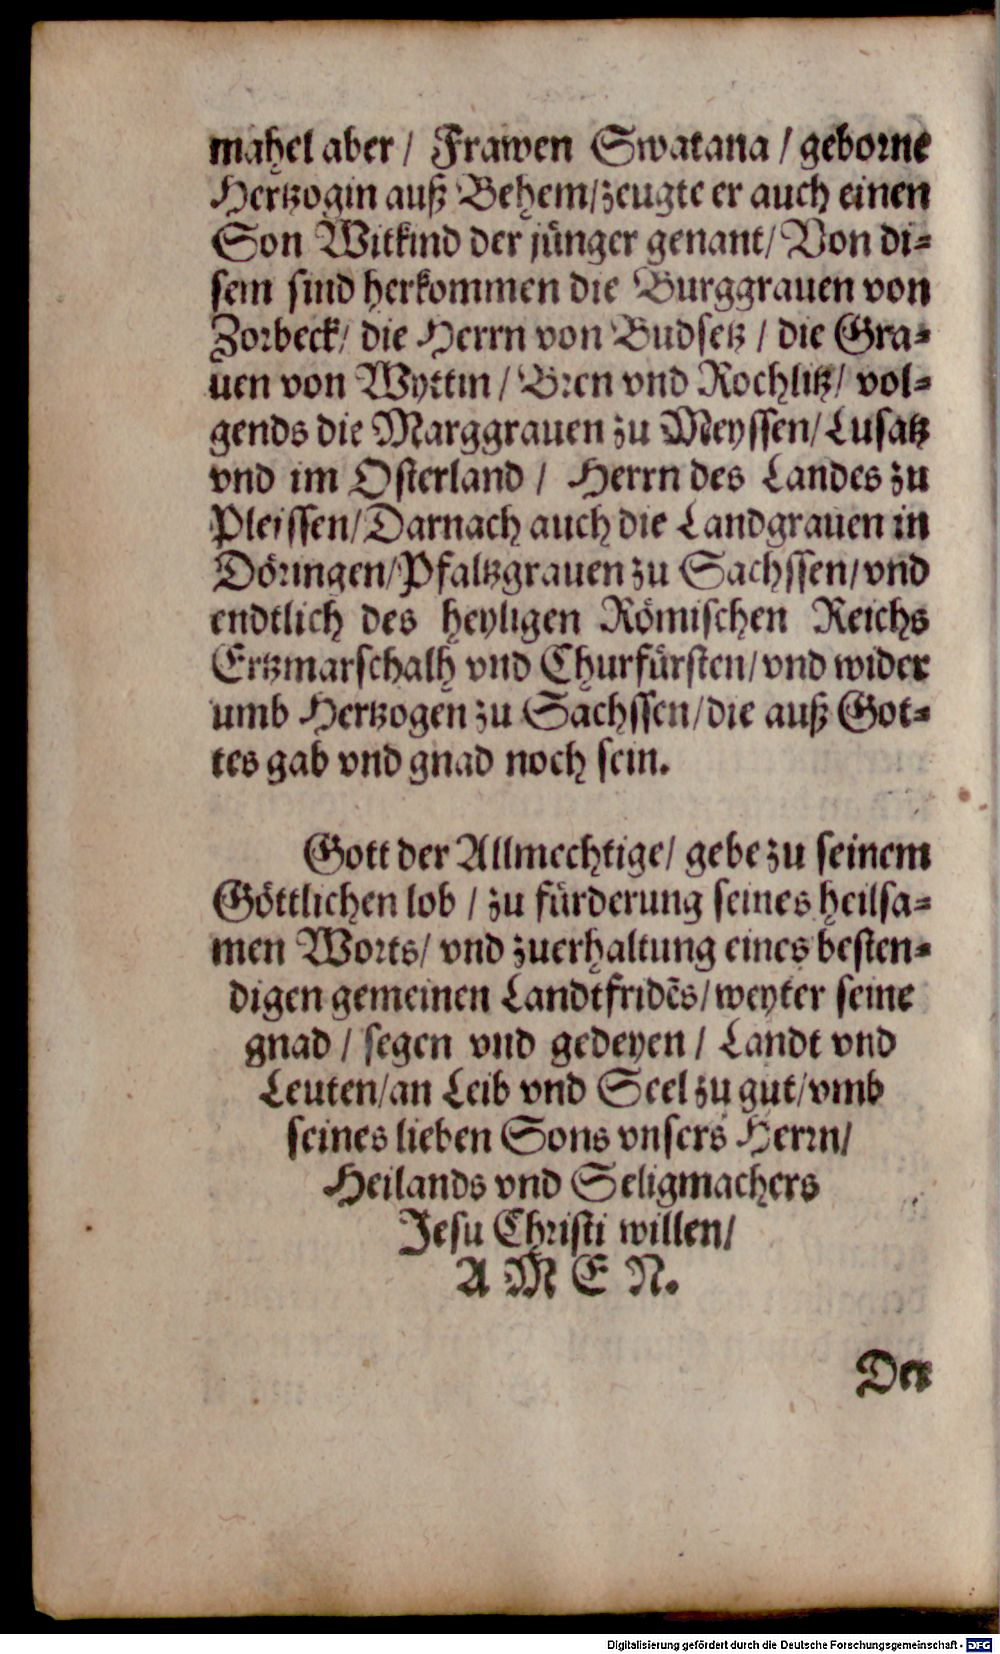 mahel aber / Frawen Swatana / geborne
Hertzogin auß Behem/zeugte er auch einen
Son Witkind der jünger genant/ Von di-
sem sind herkommen die Burggrauen von
Zorbeck/ die Herrn von Budsetz / die Gra-
uen von Wyttin / Bren vnd Rochlitz/ vol-
gends die Marggrauen zu Meyssen/ Lusatz
vnd im Osterland / Herrn des Landes zu
Pleissen/ Darnach auch die Landgrauen in
Döringen/Pfaltzgrauen zu Sachssen/ vnd
endtlich des heyligen Römischen Reichs
Ertzmarschalh vnd Churfürsten/ vnd wider
umb Hertzogen zu Sachssen/die auß Got-
tes gab vnd gnad noch sein.
Gott der Allmechtige/ gebe zu seinem
Göttlichen lob / zu fürderung seines heilsa-
men Worts/ vnd zuerhaltung eines besten-
digen gemeinen Landtfridẽs/ weyter seine
gnad / segen vnd gedeyen / Landt vnd
Leuten/an Leib vnd Seel zu gut/ vmb
seines lieben Sons vnsers Herrn/
Heilands vnd Seligmachers
Jesu Christi willen/
A M E N.
Der
Digitalisierung gefördert durch die Deutsche Forschungsgemeinschaft - DFG